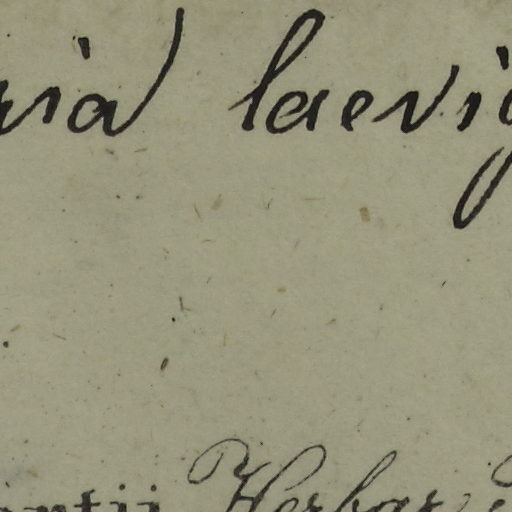 ria laevig
antii Herbar